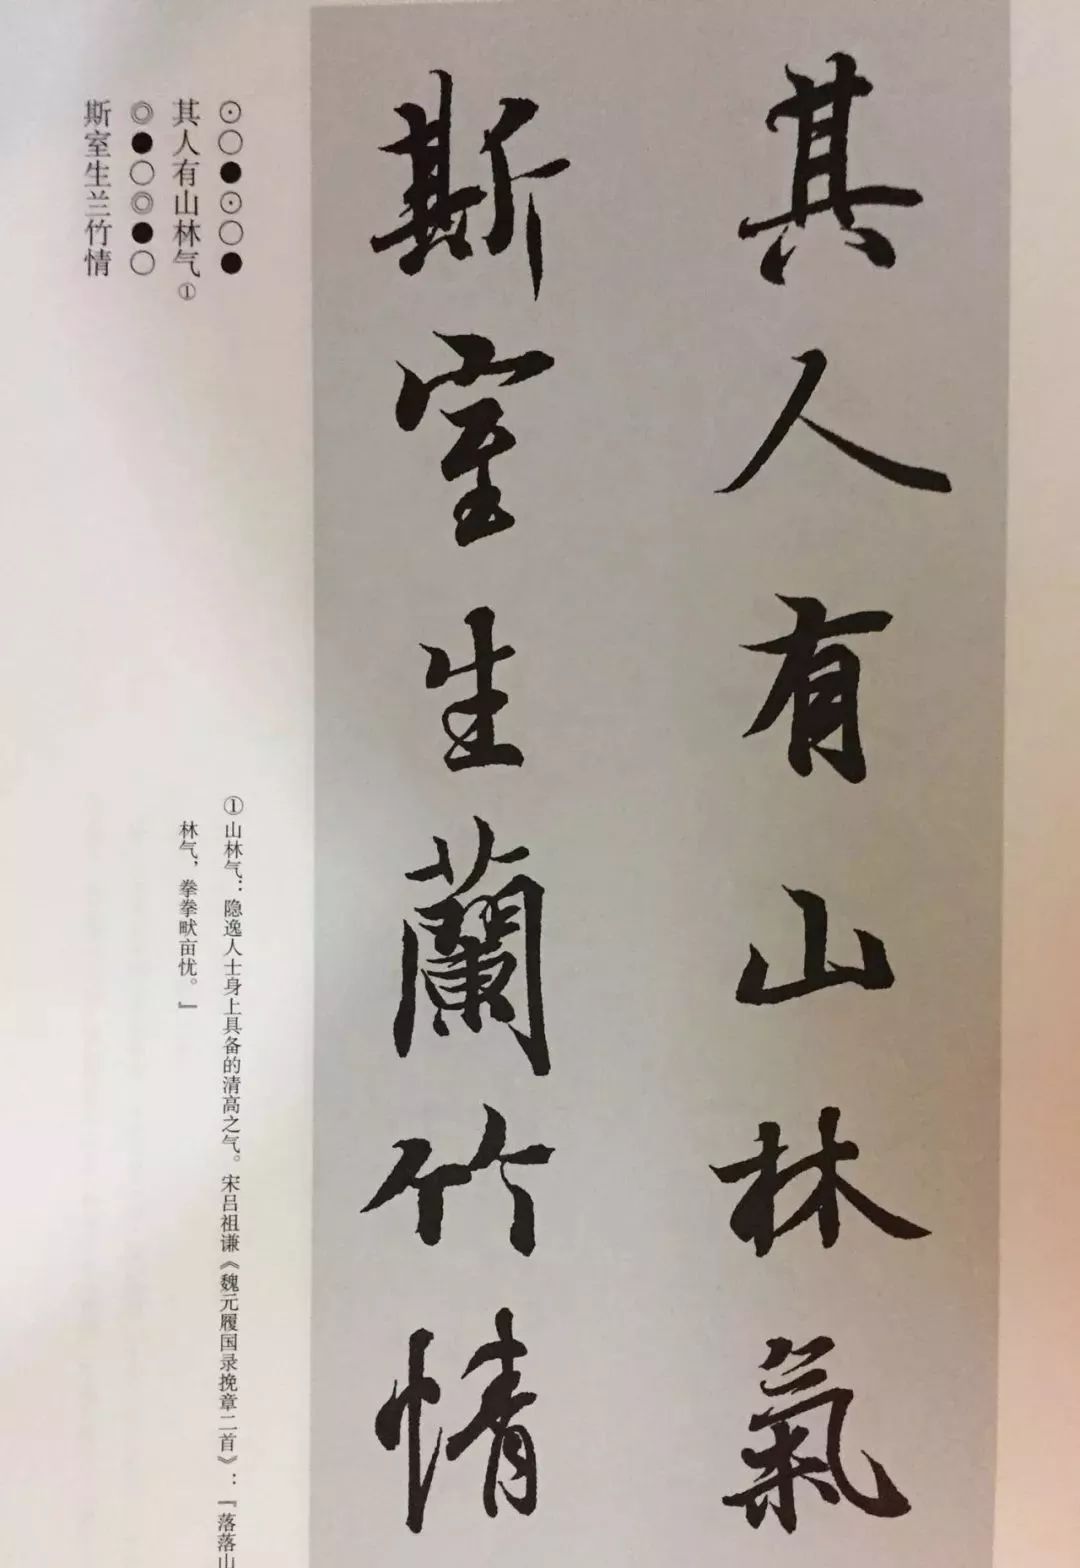 其人有山林氣
斯室生蘭竹情
⊙○●⊙○●
其人有山林气①
◎●○◎●○
斯室生兰竹情
①山林气：隐逸人士身上具备的清高之气。宋吕祖谦《魏元履国录挽章二首》：『落落山
林气，拳拳畎亩忧。』